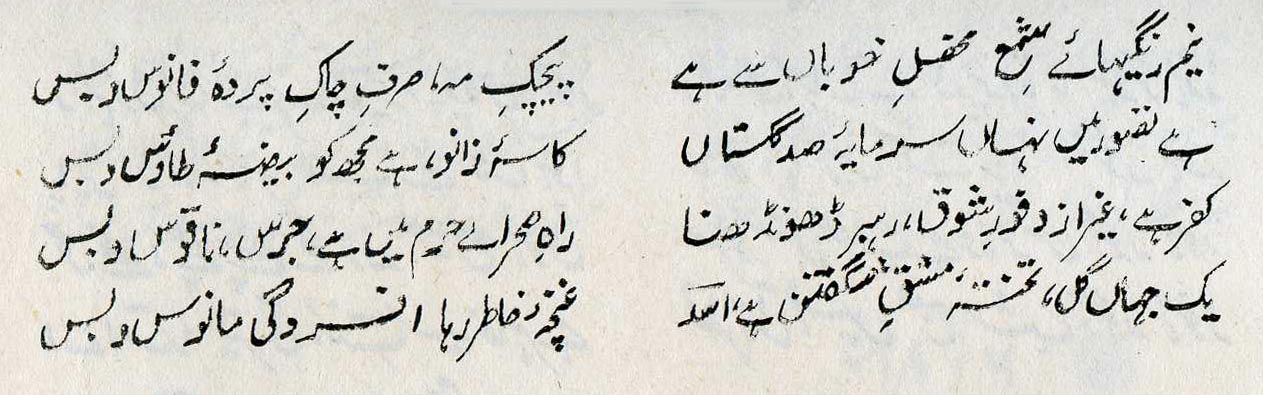 نیم رنگیہائے شمعِ محفلِ خوباں سے ہے پیچکِ مہ، صرفِ چاکِ پردۂ فانوس و بس
ہے تصور میں نہاں سرمایۂ صد گلستاں کاسۂ زانو، ہے مجھ کو بیضۂ طاؤس و بس
کفر ہے، غیر از وفورِ شوق، رہبر ڈھونڈھنا راہِ صحرائے حرم میں ہے، جرس، ناقوس و بس
یک جہاں گل، تختۂ مشقِ شگفتن ہے، اسد غنچۂ خاطر رہا افسردگی مانوس و بس